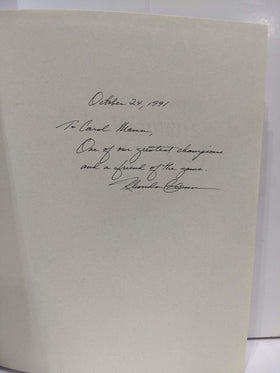 October 24, 1991
To Carol Mann,
One of our greatest champions
and a friend of the game.